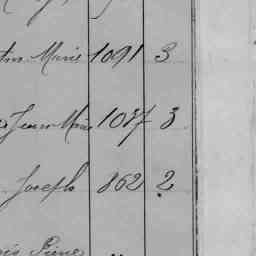 Marie 1091 3
Jeanne Marie 1037 3
Joseph 862 2
Pierre